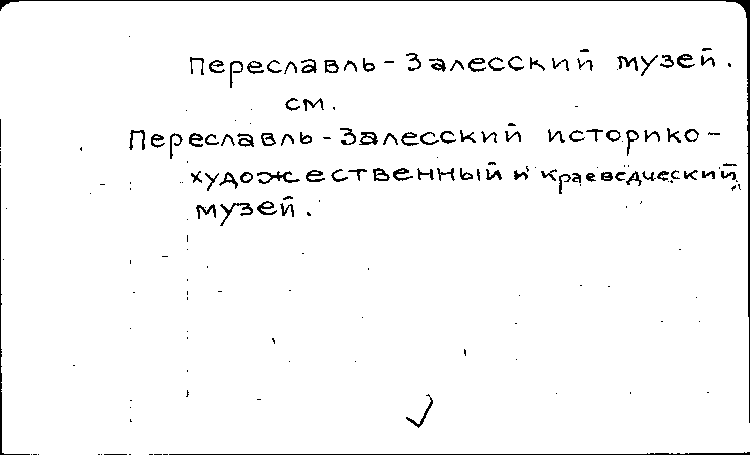 Переславль-Залесский музей.
см.
Переславль-Залесский историко-
художественный и краеведческий
музей.